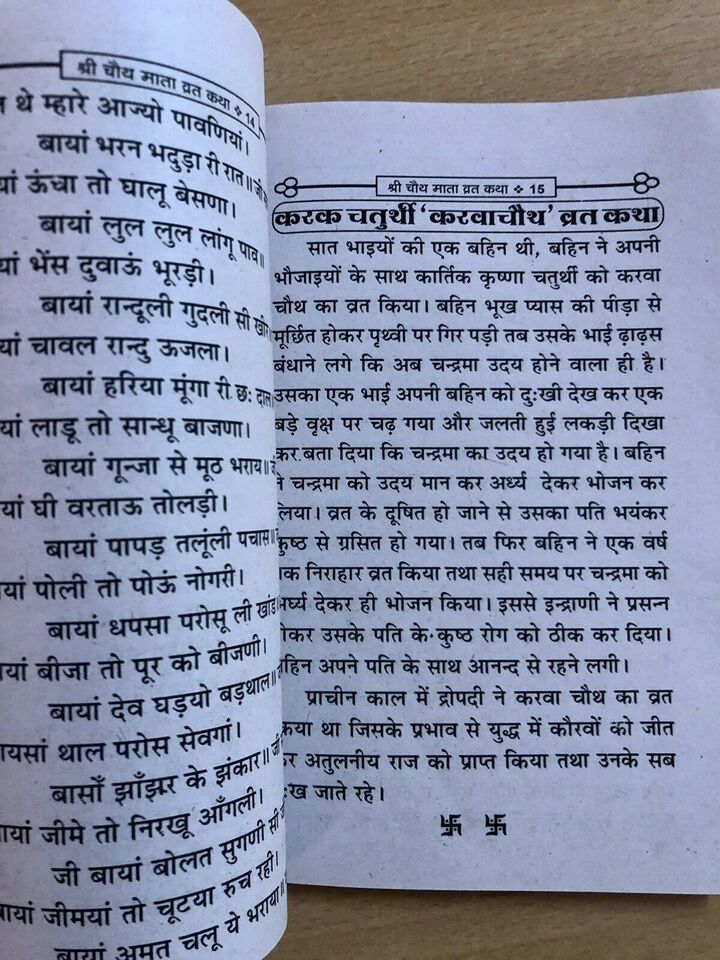 श्री चौथ माता व्रत कथा ❖ 14
थे म्हारे आज्यो पावणियां।
बायां भरन भदुड़ा री रात॥
ऊंचा तो घालू बेसणा।
बायां लुल लुल लांगू पाव॥
भेंस दुवाऊं भूरड़ी।
बायां रान्दूली गुदली सी खीर
चावल रान्दु ऊजला।
बायां हरिया मूंगा री छः दाल
लाडू तो सान्धू बाजणा।
बायां गून्जा से मूठ भराय॥
घी वरताऊ तोलड़ी।
बायां पापड़ तलूंली पचास॥
पोली तो पोऊं नोगरी।
बायां धपसा परोसू ली खांड
बीजा तो पूर को बीजणी।
बायां देव घड़यो बड़थाल॥
थाल परोस सेवगां।
बासाँ झाँझर के झंकार॥
जीमे तो निरखू आँगली।
जी बायां बोलत सुगणी सी
जीमयां तो चूटया रुच रही।
बायां अमृत चलू ये भराया॥
श्री चौथ माता व्रत कथा ❖ 15
करक चतुर्थी ‘करवाचौथ’ व्रत कथा
सात भाइयों की एक बहिन थी, बहिन ने अपनी
भौजाइयों के साथ कार्तिक कृष्णा चतुर्थी को करवा
चौथ का व्रत किया। बहिन भूख प्यास की पीड़ा से
मूर्छित होकर पृथ्वी पर गिर पड़ी तब उसके भाई ढ़ाढ़स
बंधाने लगे कि अब चन्द्रमा उदय होने वाला ही है।
उसका एक भाई अपनी बहिन को दुःखी देख कर एक
बड़े वृक्ष पर चढ़ गया और जलती हुई लकड़ी दिखा
कर बता दिया कि चन्द्रमा का उदय हो गया है। बहिन
ने चन्द्रमा को उदय मान कर अर्ध्य देकर भोजन कर
लिया। व्रत के दूषित हो जाने से उसका पति भयंकर
कुष्ठ से ग्रसित हो गया। तब फिर बहिन ने एक वर्ष
निराहार व्रत किया तथा सही समय पर चन्द्रमा को
अर्घ्य देकर ही भोजन किया। इससे इन्द्राणी ने प्रसन्न
होकर उसके पति के कुष्ठ रोग को ठीक कर दिया।
बहिन अपने पति के साथ आनन्द से रहने लगी।
प्राचीन काल में द्रोपदी ने करवा चौथ का व्रत
किया था जिसके प्रभाव से युद्ध में कौरवों को जीत
कर अतुलनीय राज को प्राप्त किया तथा उनके सब
दुःख जाते रहे।
卐 卐